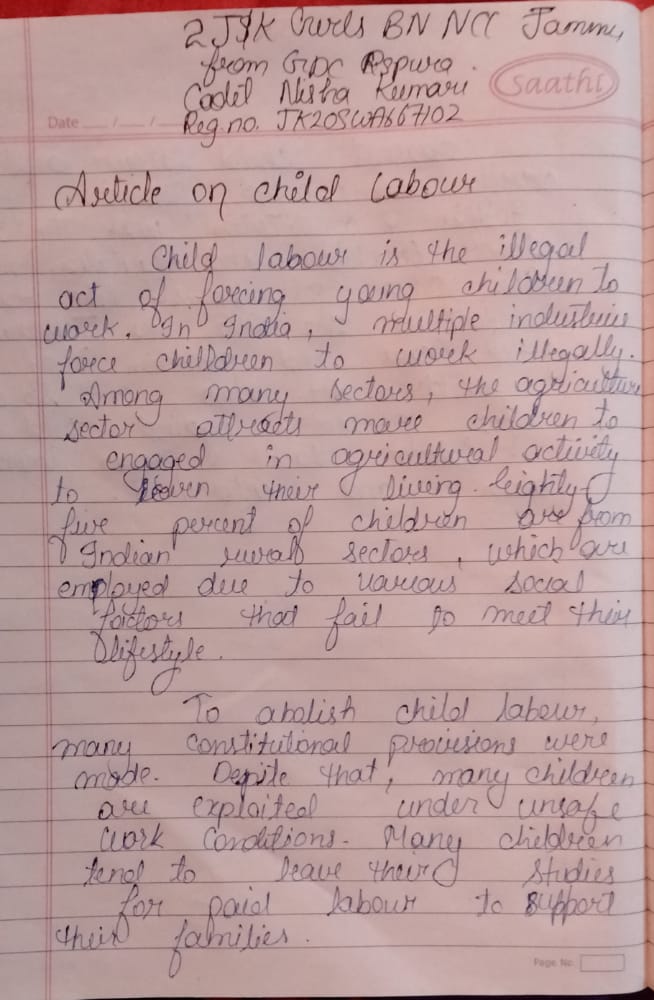 2 J&K Girls BN NCC Jammu
from GDC Rspura.
Cadil Nisha Kumari
Saathi
Date / /
Reg.no. JK20SWA667102
Article on child Labour
Child labour is the illegal
act of forcing young children to
work. In India, multiple industries
force children to work illegally.
Among many sectors, the agriculture
sector attracts more children to
engaged in agricultural activity
to their living. Eighty
five percent of children are from
Indian rural sectors, which are
employed due to various social
factors that fail to meet their
lifestyle.
To abolish child labour,
many constitutional provisions were
made. Depite that, many children
are exploited under unsafe
work conditions. Many children
tend to leave their studies
for paid labour to support
their families.
Page No.